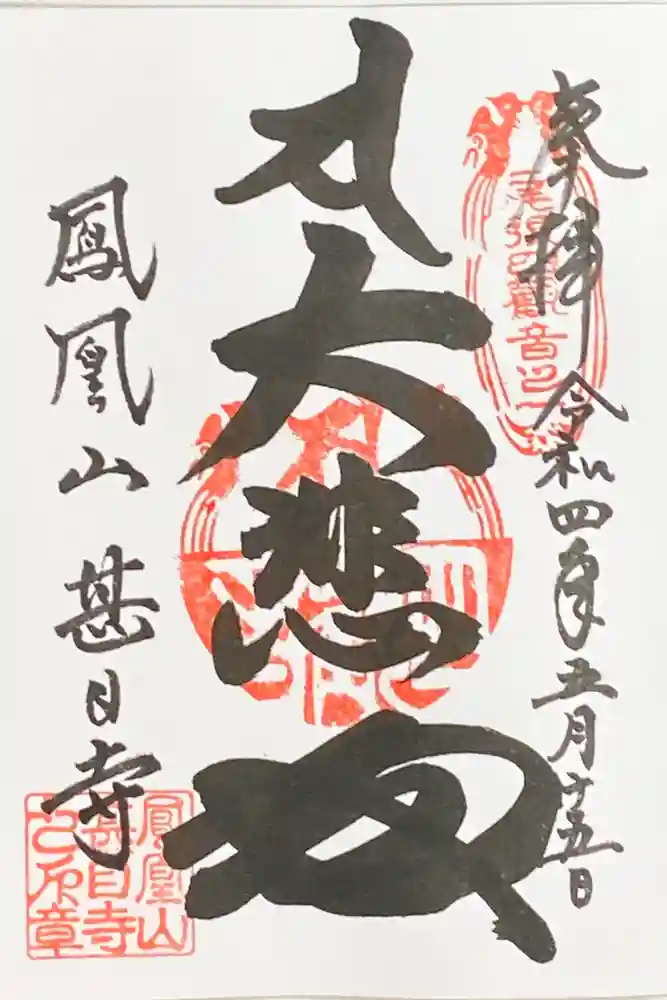 奉拝 令和四年五月十五日
尾張四觀音之一
大悲殿
鳳凰山 甚目寺
鳳凰山
甚目寺
之印章